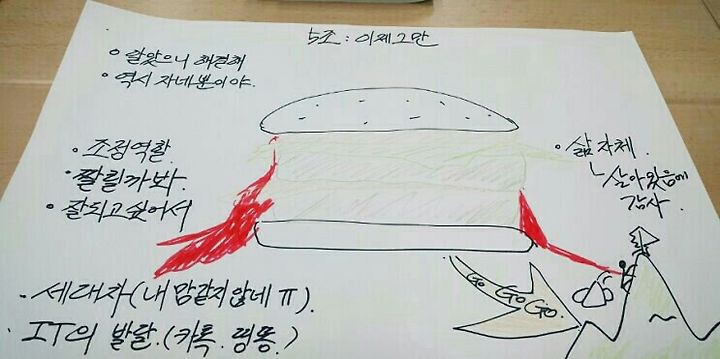 5조 : 이제그만
• 알았으니 해결해
• 역시 자네뿐이야.
• 조정역할.
• 짤릴까봐.
• 잘되고싶어서
• 삶자체.
ㄴ살아왔음에
감사.
Go Go Go.
• 세대차(내 맘같지않네 ㅠ).
• IT의 발달.(카톡.